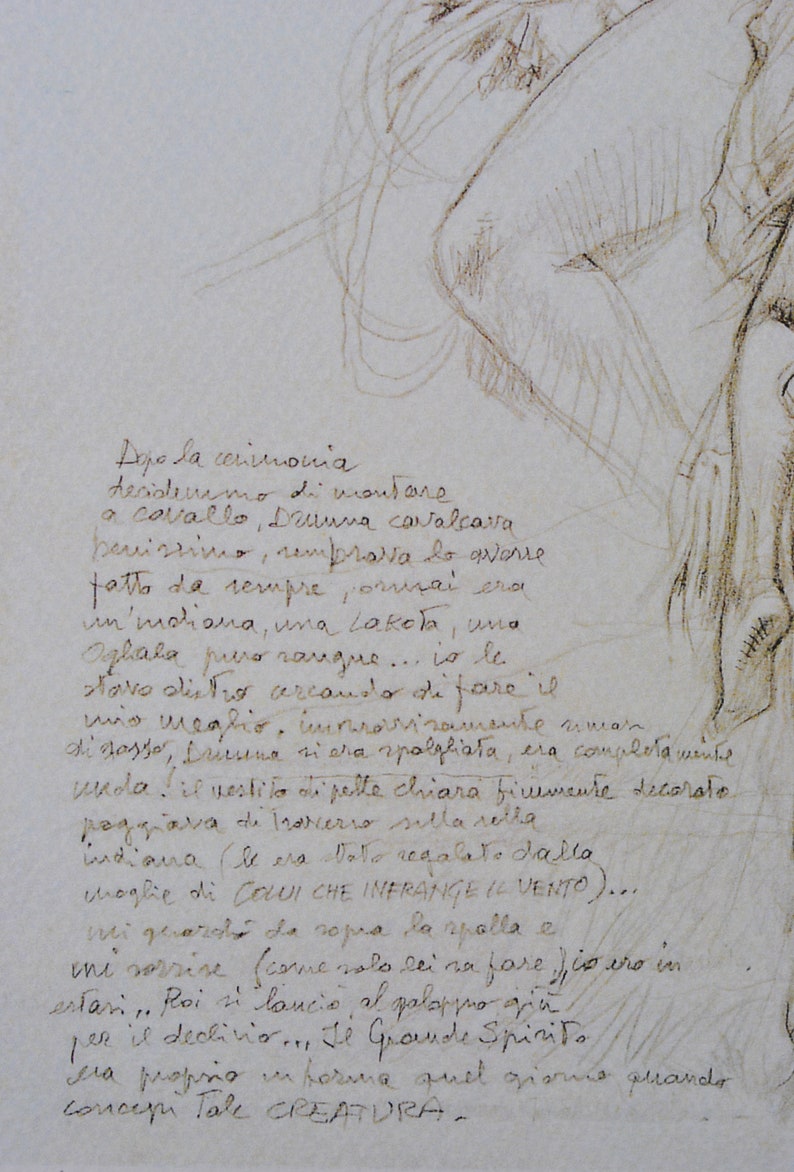 Dopo la cerimonia
decidemmo di montare
a cavallo, Druuna cavalcava
benissimo, sembrava lo avesse
fatto da sempre, ormai era
un'indiana, una Lakota, una
Oglala puro sangue... io le
stavo dietro cercando di fare il
mio meglio. improvvisamente rimasi
di sasso, Druuna si era spolgliata, era completamente
nuda! il vestito di pelle chiara finemente decorato
poggiava di traverso sulla sella
indiana (le era stato regalato dalla
moglie di COLUI CHE INFRANGE IL VENTO)...
mi guardò da sopra la spalla e
mi sorrise (come solo lei sa fare), io ero in
estasi,.. Poi si lanciò al galoppo giù
per il declivio... Il Grande Spirito
era proprio in forma quel giorno quando
concepì Tale CREATURA.